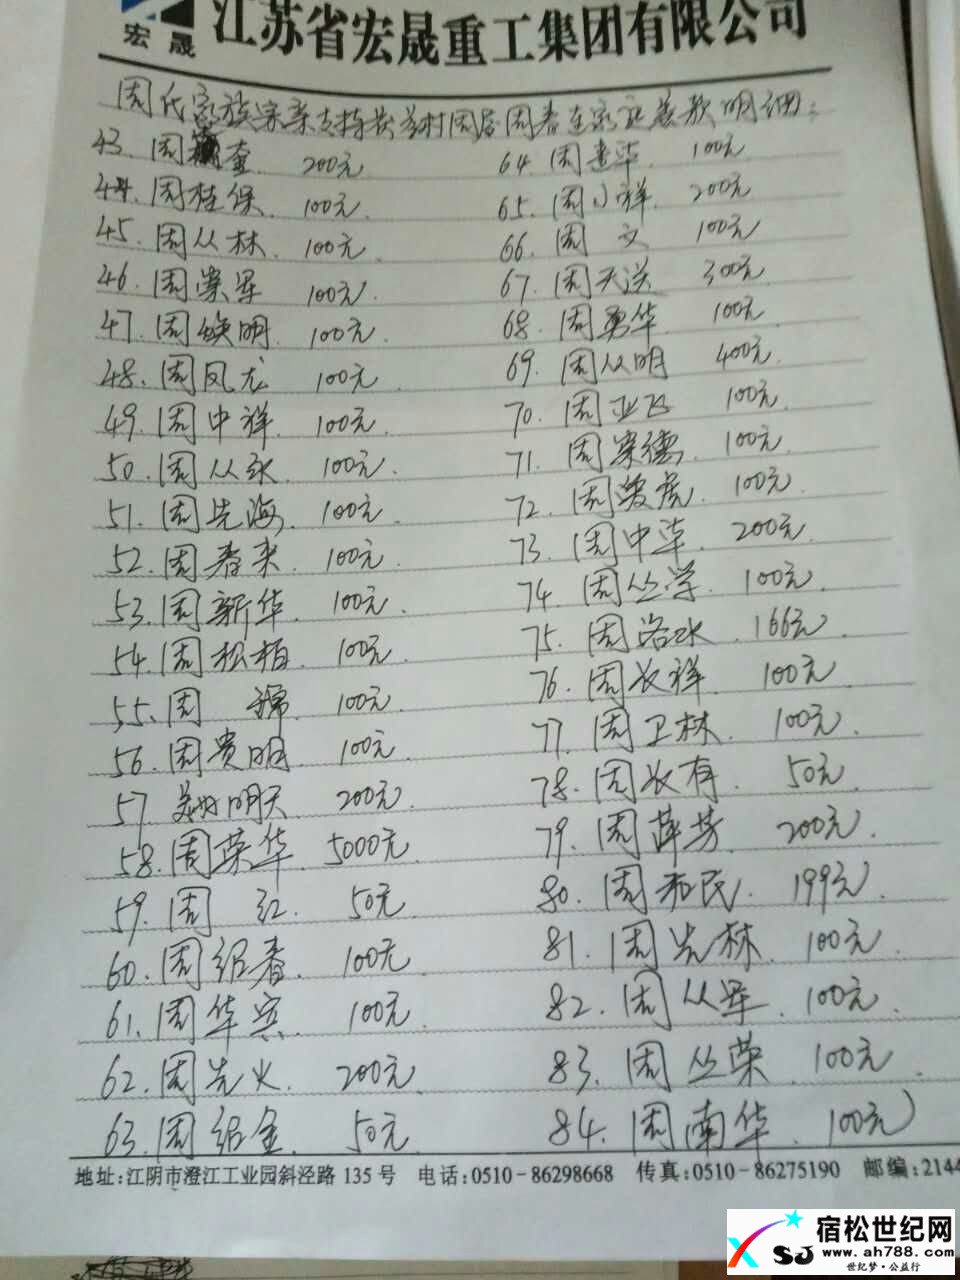 宏晟 江苏省宏晟重工集团有限公司
周氏家族宗亲支持 村周 周春 款明细：
43. 周 奎 200元
44. 周桂保 100元
45. 周从林 100元
46. 周荣军 100元.
47. 周焕明 100元
48. 周凤龙 100元
49. 周中祥. 100元.
50. 周从永 100元.
51. 周先海 100元.
52. 周春来 100元.
53. 周新华 100元.
54. 周松柏. 100元.
55. 周 锦 100元.
56. 周贵明 100元.
57. 美好明天 200元.
58. 周荣华 5000元
59. 周 红 50元
60. 周绍春. 100元
61. 周华宾 100元.
62. 周先火. 200元.
63. 周绍金. 50元
64. 周建华. 100元
65. 周小祥. 200元
66. 周 文 100元
67. 周天送 300元
68. 周勇华. 100元
69. 周从明 400元.
70. 周亚飞 100元.
71. 周崇德 100元.
72. 周 虎. 100元.
73. 周中华. 200元.
74. 周丛学. 100元.
75. 周洛水 166元
76. 周长祥. 100元.
77. 周卫林. 100元.
78. 周长有. 50元
79. 周萍芳 200元.
80. 周和民. 199元.
81. 周先林 100元.
82. 周从军. 100元.
83. 周丛荣 100元
84. 周南华. 100元)
地址:江阴市澄江工业园斜泾路 135 号 电话:0510-86298668 传真:0510-86275190 邮编:2144
宿松世纪网
XSJ www.ah788.com
世纪梦·公益行